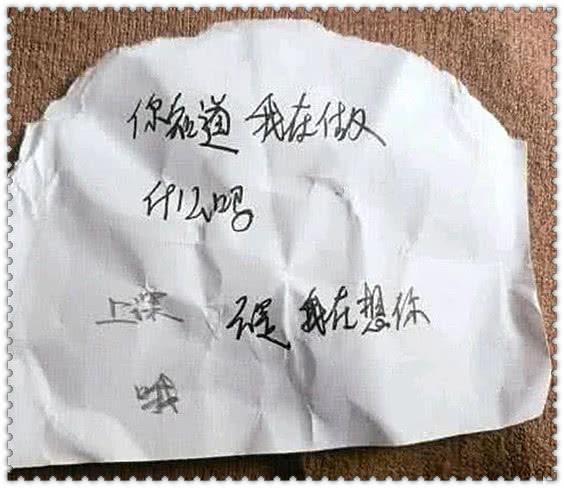 你知道 我在做
什么吗
上课 不是 我在想你
哦